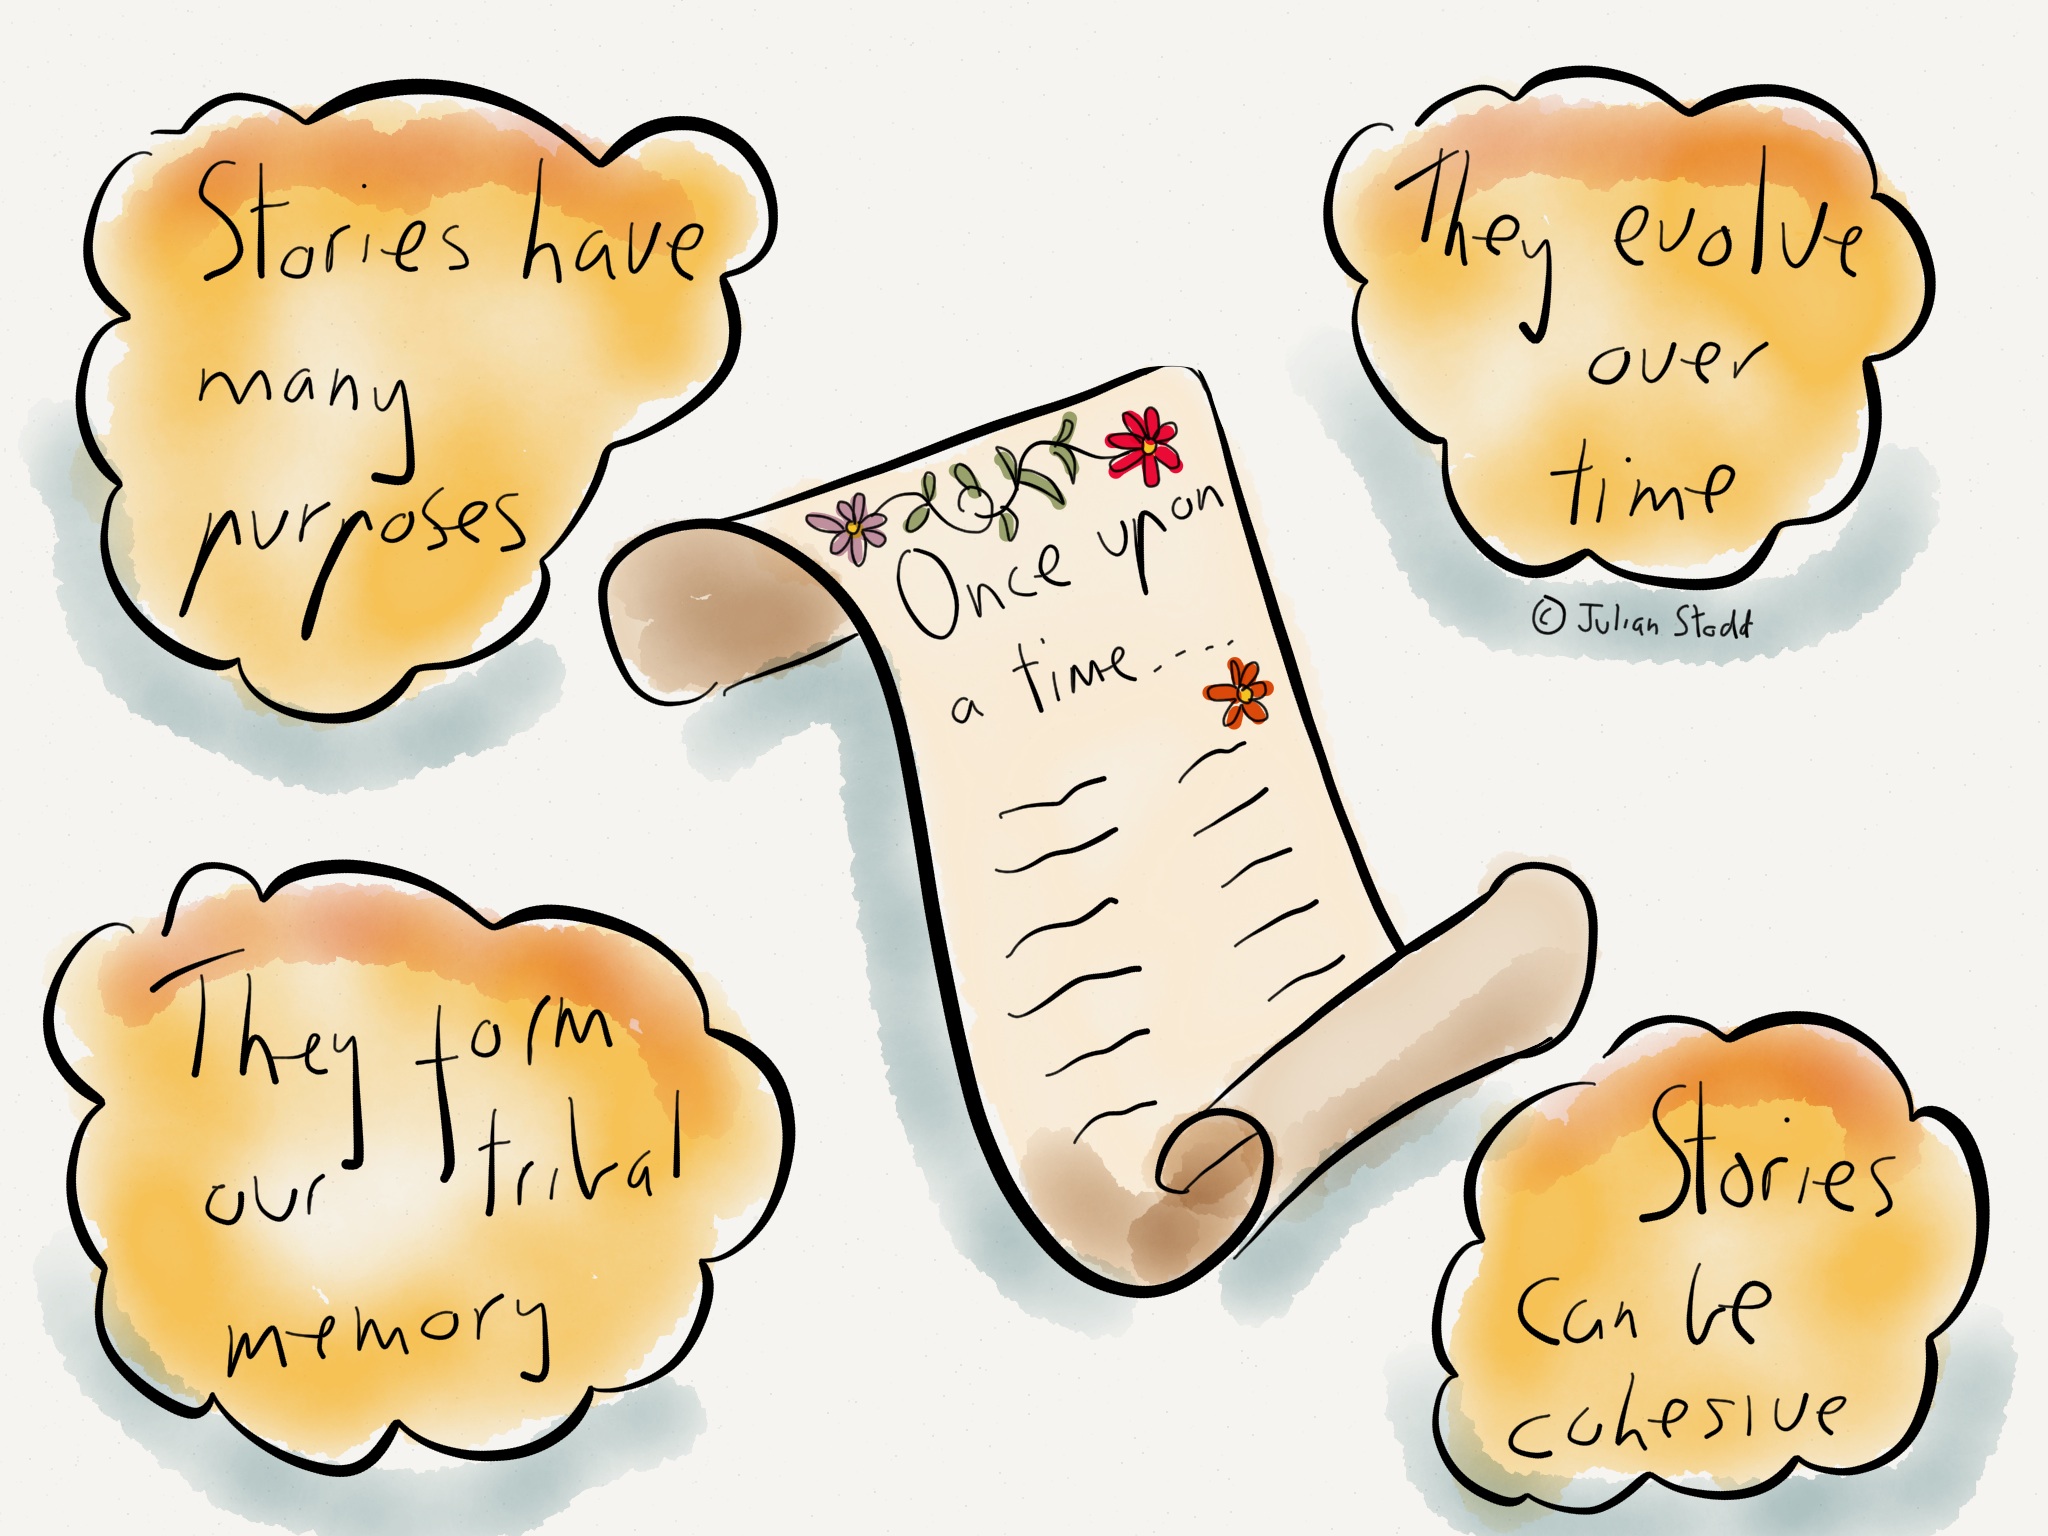 Stories have
many
purposes
They evolve
over
time
© Julian Stodd
Once upon
a time.....
They form
our tribal
memory
Stories
can be
cohesive